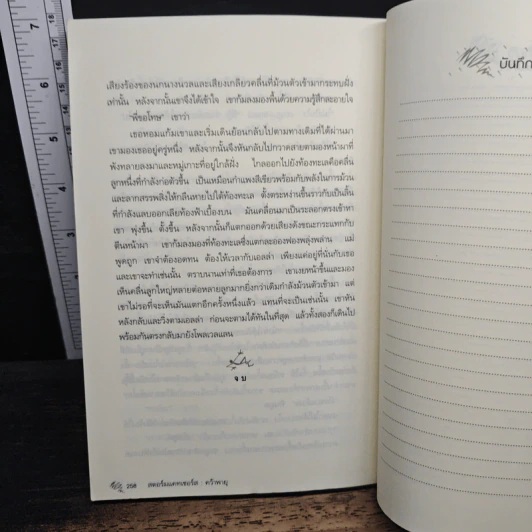 เสียงร้องของนกนางนวลและเสียงเกลียวคลื่นที่ม้วนตัวเข้ามากระทบฝั่ง
เท่านั้น หลังจากนั้นเขาจึงได้เข้าใจ เขาก้มลงมองพื้นด้วยความรู้สึกละอายใจ
"พี่ขอโทษ" เขาว่า
เธอหอมแก้มเขาและเริ่มเดินย้อนกลับไปตามทางเดิมที่ได้ผ่านมา
เขามองเธออยู่ครู่หนึ่ง หลังจากนั้นจึงหันกลับไปกวาดสายตามองหน้าผาที่
พังทลายลงมาและหมู่เกาะที่อยู่ใกล้ฝั่ง ไกลออกไปยังท้องทะเลคือคลื่น
ลูกหนึ่งที่กำลังก่อตัวขึ้น เป็นเหมือนกำแพงสีเขียวพร้อมกับพลังในการม้วน
และลากสรรพสิ่งให้กลืนหายไปใต้ท้องทะเล ตั้งตระหง่านขึ้นราวกับเป็นลิ้น
ที่กำลังแลบออกเลียท้องฟ้าเบื้องบน มันเคลื่อนมาเป็นระลอกตรงเข้าหา
เขา พุ่งขึ้น ตั้งขึ้น หลังจากนั้นก็แตกออกด้วยเสียงดังขณะกระแทกกับ
ตีนหน้าผา เขาก้มมองที่ท้องทะเลซึ่งแตกละอองฟองพลุ่งพล่าน แม่
พูดถูก เขาจำต้องอดทน ต้องให้เวลากับเอลล่า เพียงแค่อยู่ที่นั่นกับเธอ
และเขาจะทำเช่นนั้น ตราบนานเท่าที่เธอต้องการ เขาเงยหน้าขึ้นและมอง
เห็นคลื่นลูกใหญ่หลายต่อหลายลูกมากยิ่งกว่าเดิมกำลังม้วนตัวเข้ามา แต่
เขาไม่รอที่จะเห็นมันแตกอีกครั้งหนึ่งแล้ว แทนที่จะเป็นเช่นนั้น เขาหัน
หลังกลับและวิ่งตามเอลล่า ก่อนจะตามได้ทันในที่สุด แล้วทั้งสองก็เดินไป
พร้อมกันตรงกลับมายังโพลเวลแลน
จบ
258 สตอร์มแคทเชอร์ส : คว้าพายุ
บันทึก